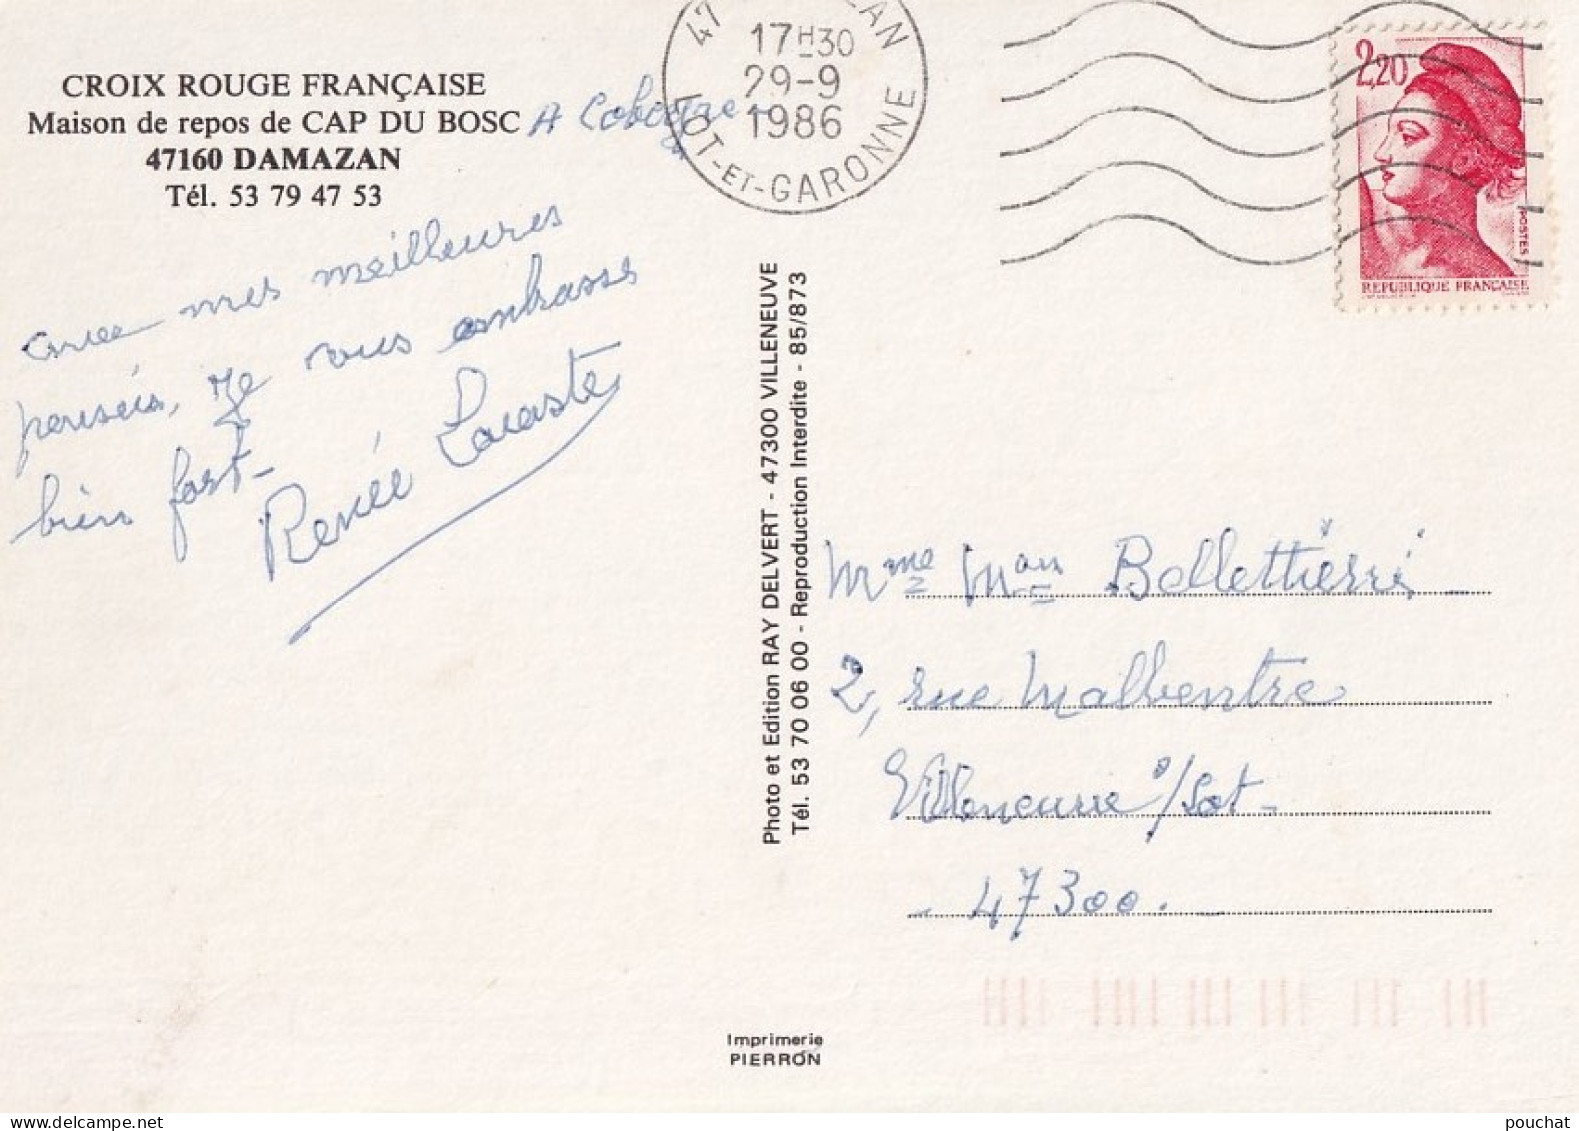 CROIX ROUGE FRANÇAISE
Maison de repos de CAP DU BOSC
47160 DAMAZAN
Tél. 53 79 47 53
A
avec mes meilleures
pensées, je vous embrasse
bien fort-
Renée Lacaste
47 ZAN
17H30
29-9
1986
LOT-ET-GARONNE
2,20
POSTES
REPUBLIQUE FRANÇAISE
Photo et Edition RAY DELVERT - 47300 VILLENEUVE
Tél. 53 70 06 00 - Reproduction Interdite - 85/873
Mme Bellettiérri
2, rue Malbentre
Villeneuve s/Lot-
- 47300.-
Imprimerie
PIERRON
pouchat
www.delcampe.net